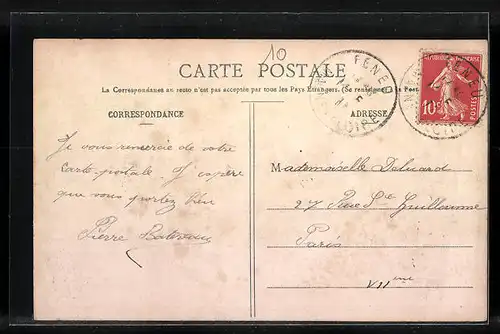 10
CARTE POSTALE
La Correspondance au recto n'est pas acceptée par tous les Pays Étrangers. (Se renseigner à la Poste)
CORRESPONDANCE
ADRESSE
FENEU
LOIRE
FENEU
REPUBLIQUE FRANÇAISE
10c
POSTES
Je vous remercie de votre
Carte postale. J'espère
que vous portez bien
Pierre
Mademoiselle
27 Rue Ste Guillaume
Paris
VIIème